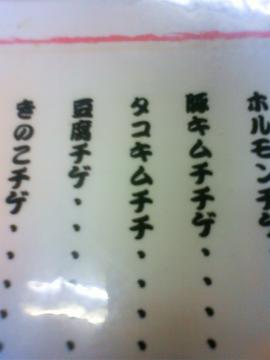 ホルモンチゲ、
豚キムチチゲ、、、、
タコキムチチ、、、、
豆腐チゲ、、、、、
きのこチゲ、、、、